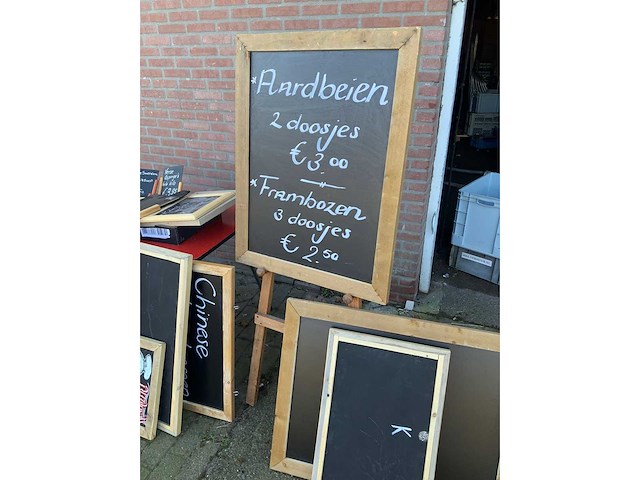 Aardbeien
2 doosjes
€ 3.00
Frambozen
3 doosjes
€ 2.50
Chinese
K